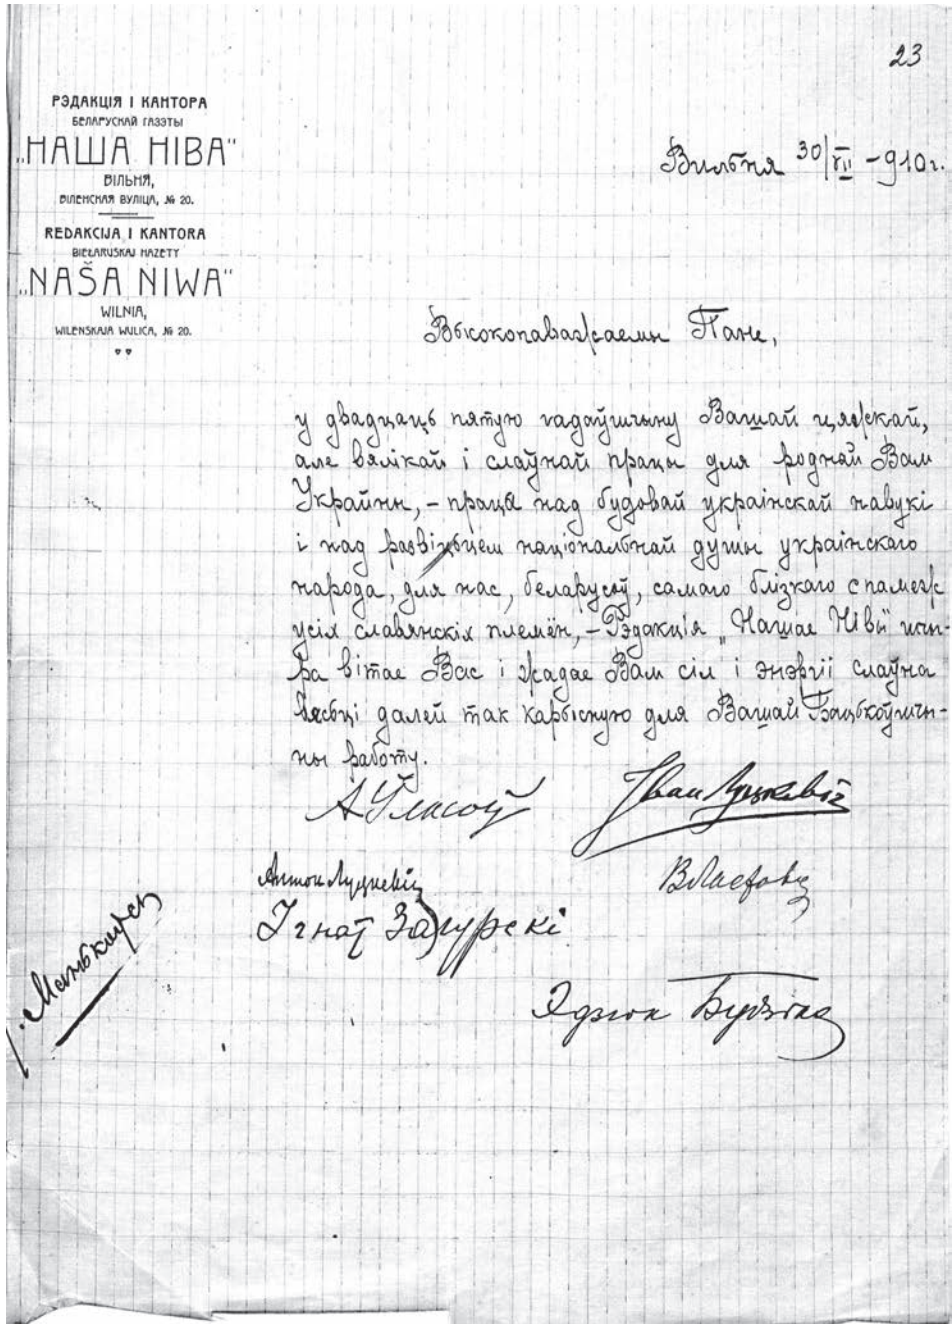 23
РЭДАКЦІЯ І КАНТОРА
БЕЛАРУСКАЙ ГАЗЭТЫ
„НАША НІВА“
ВІЛЬНЯ,
ВІЛЕНСКАЯ ВУЛІЦА, № 20.
REDAKCIJA I KANTORA
BIEŁARUSKAJ HAZETY
„NAŠA NIWA“
WILNIA,
WILENSKAJA WULICA, № 20.
Вильня 30/VII –910 г.
Высокопаважаемы Пане,
у двадцаць пятую гадаўшчыну Вашай цяжкай,
але вялікай і слаўнай працы для роднай Вам
Украйны, – праца над будовай украінскай навукі
і над развіцьцем національнай душы украінскаго
народа, для нас, беларусоў, самаго блізкаго спамеж
усіх славянскіх племён, – Рэдакція „Нашае Нівы“ шчы-
ра вітае Вас і жадае Вам сіл і энэргіі слаўна
весьці далей так карысную для Вашай Бацькоўшчы-
ны работу.
А Уласоў
Іван Луцкевіч
Антон Луцкевіч
В Ластовск
Ігнат Загурскі
Манькоўск
Эдзюк Будзька